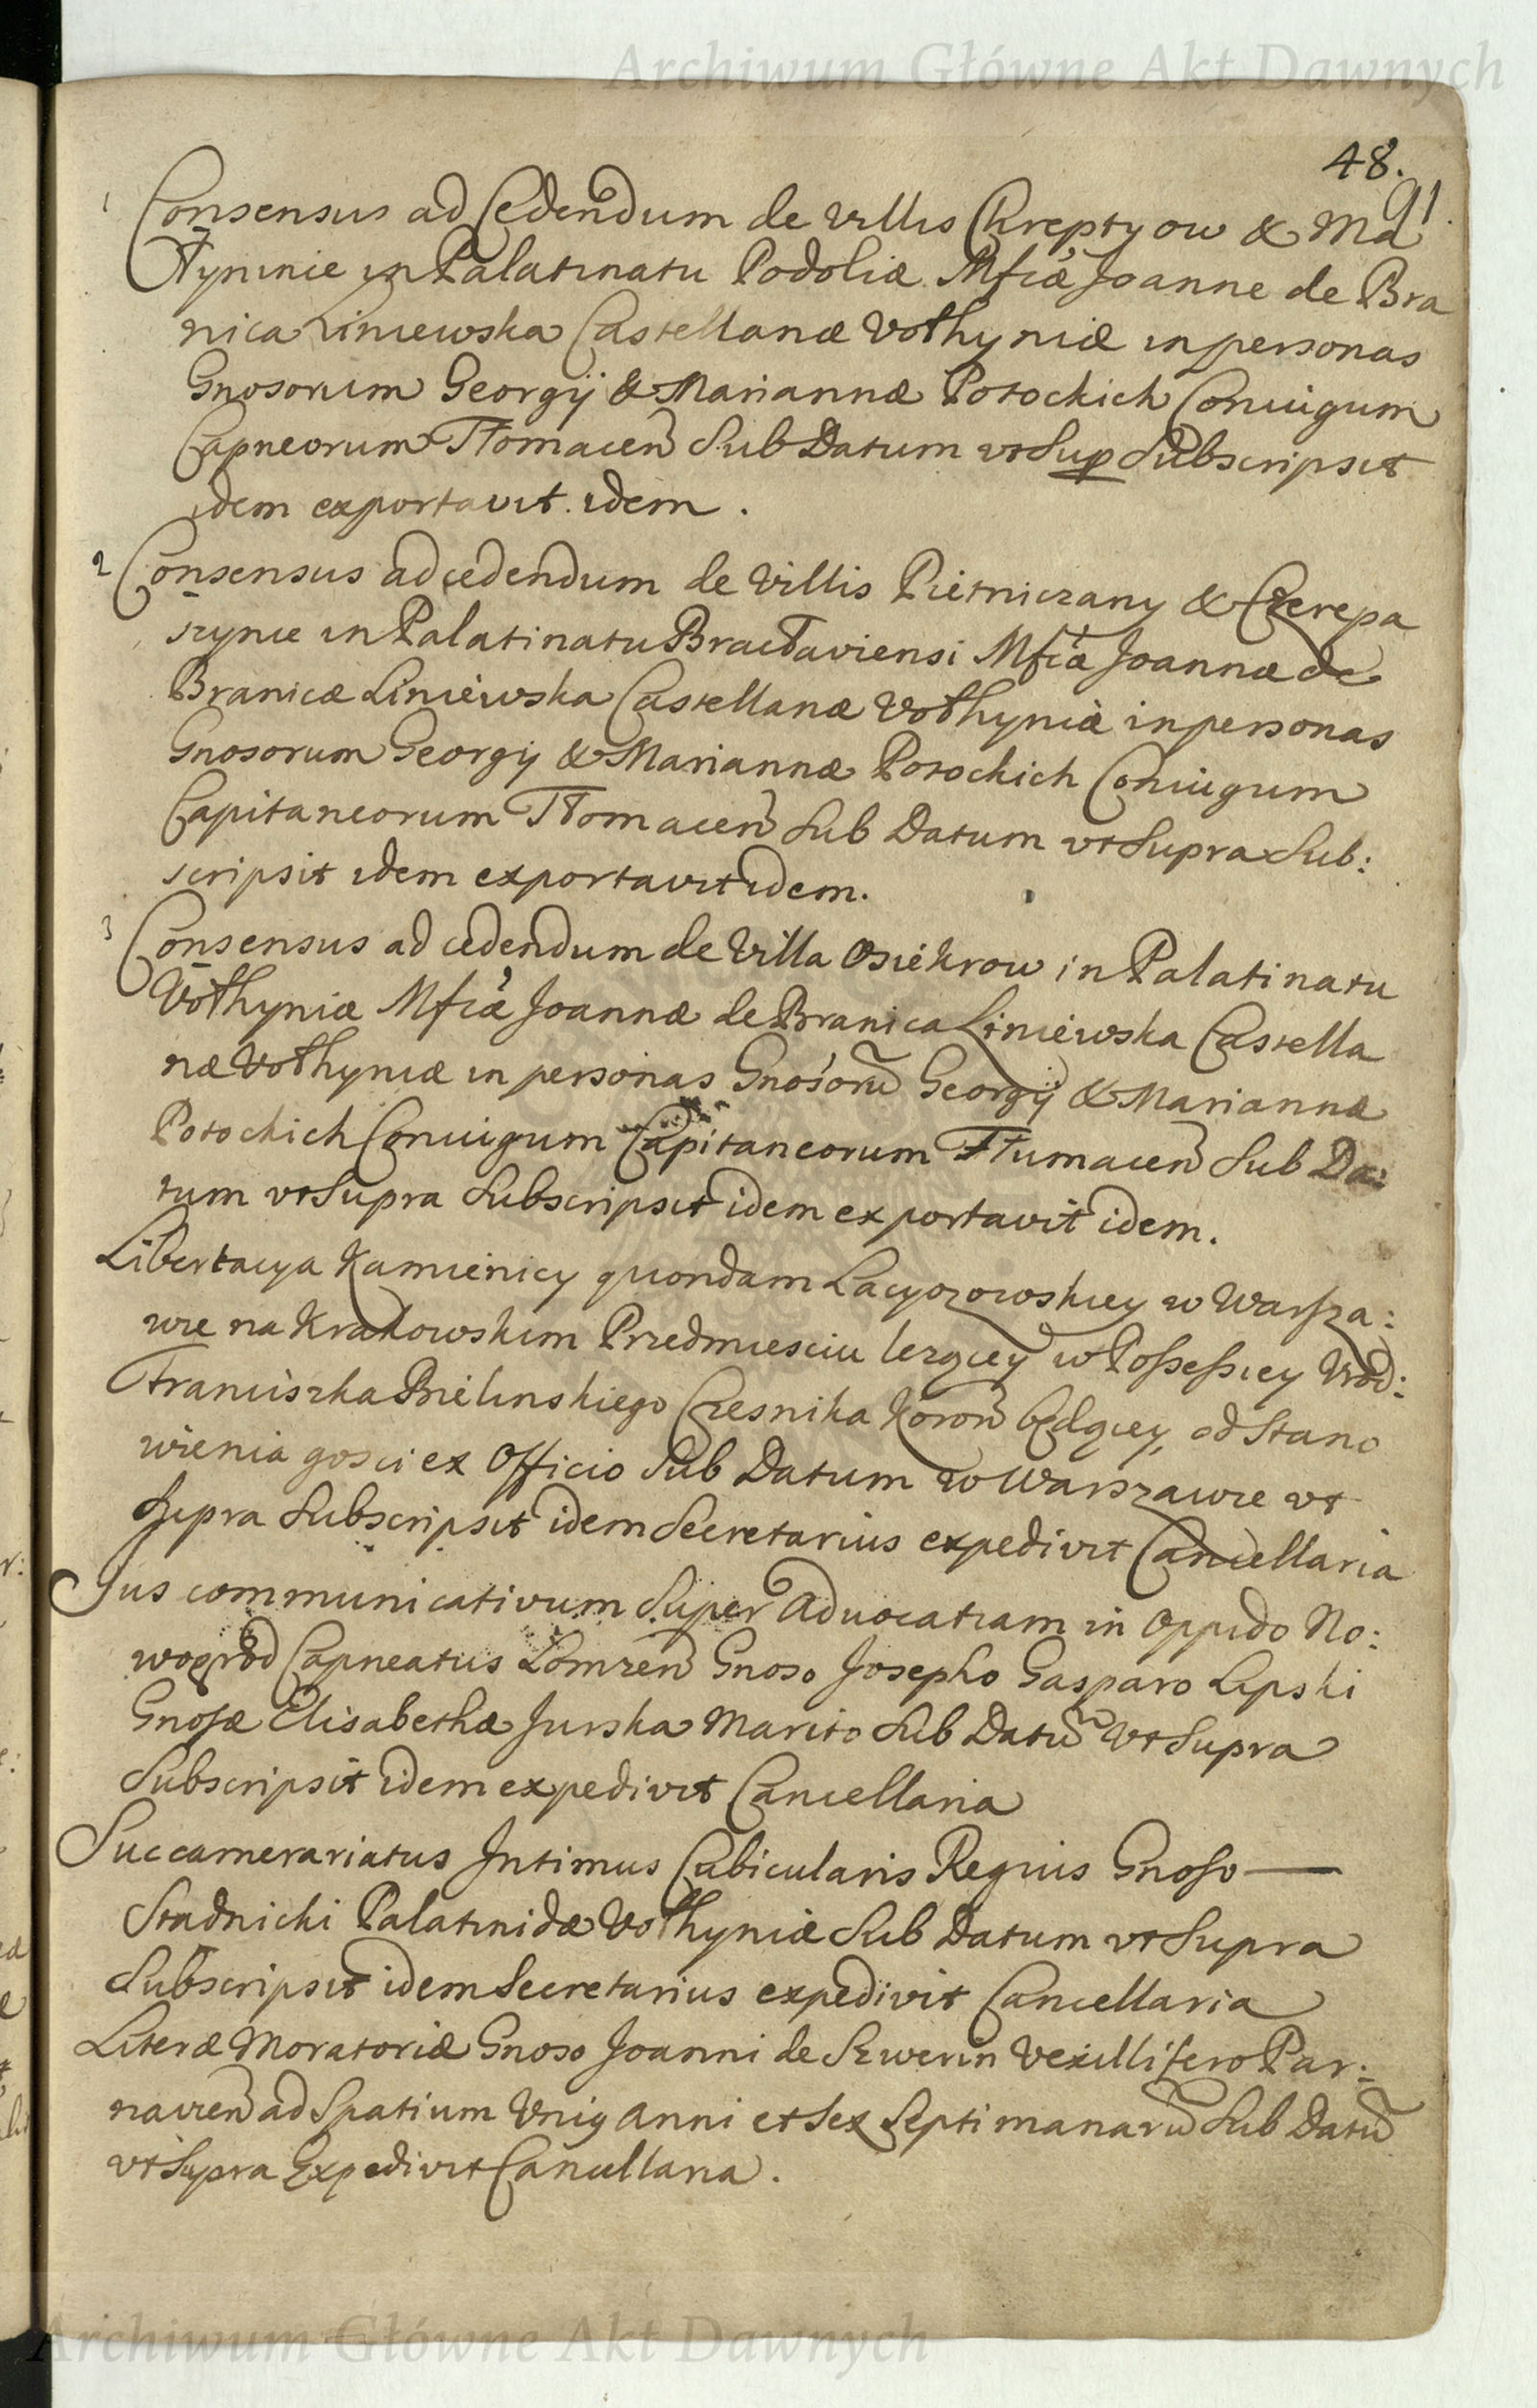 Archiwum Główne Akt Dawnych
48.
91.
1 Consensus ad Cedendum de villis Chreptyow & Ma
Tyninie in Palatinatu Podoliæ Mfiæ Joanne de Bra
nica Liniewska Castellanæ Wołhyniæ in personas
Gnosorum Georgÿ & Mariannæ Potockich Coniugum
Capneorum Tłomacen Sub Datum vt Sup Subscripsit
idem exportavit idem.
2 Consensus ad cedendum de Villis Pietniczany & Czerepa
szynie in Palatinatu Bracłaviensi Mfiæ Joannæ de
Branicæ Liniewska Castellanæ Wołhyniæ in personas
Gnosorum Georgij & Mariannæ Potockich Coniugum
Capitaneorum Tłomacen Sub Datum vt Supra Sub:
scripsit idem exportavit idem.
3 Consensus ad cedendum de Villa Osiekrow in Palatinatu
Wołhyniæ Mfiæ Joannæ de Branica Liniewska Castella
næ Wołhyniæ in personas Gnosorū Georgij & Mariannæ
Potockich Coniugum Capitaneorum Tłumacen Sub Da:
tum vt Supra Subscripsit idem exportavit idem.
Libertacya Kamienicy quondam Lacyozowskiey w Warsza:
wie na Krakowskim Przedmiesciu lezącey w Possessiey Urod:
Franciszka Bielinskiego Czesnika Koron będącey, od Stano
wienia gosci ex Officio Sub Datum w Warszawie vt
Supra Subscripsit idem Secretarius expedivit Cancellaria
Jus communicativum Super Advocatiam in Oppido No:
wogrod Capneatus Lomzen Gnoso Josepho Gasparo Lipski
Gnosæ Elisabethæ Jurska Marito Sub Datū vt Supra
Subscripsit idem expedivit Cancellaria
Succamerariatus Intimus Cubicularis Regius Gnoso —
Stadnicki Palatinidæ Wołhyniæ Sub Datum vt Supra
Subscripsit idem Secretarius expedivit Cancellaria
Literæ Moratoriæ Gnoso Joanni de Szwerin Vexillifero Par:
navien ad Spatium Vnig Anni et Sex Septimanarū Sub Datū
vt Supra Expedivit Cancellaria.
Archiwum Główne Akt Dawnych